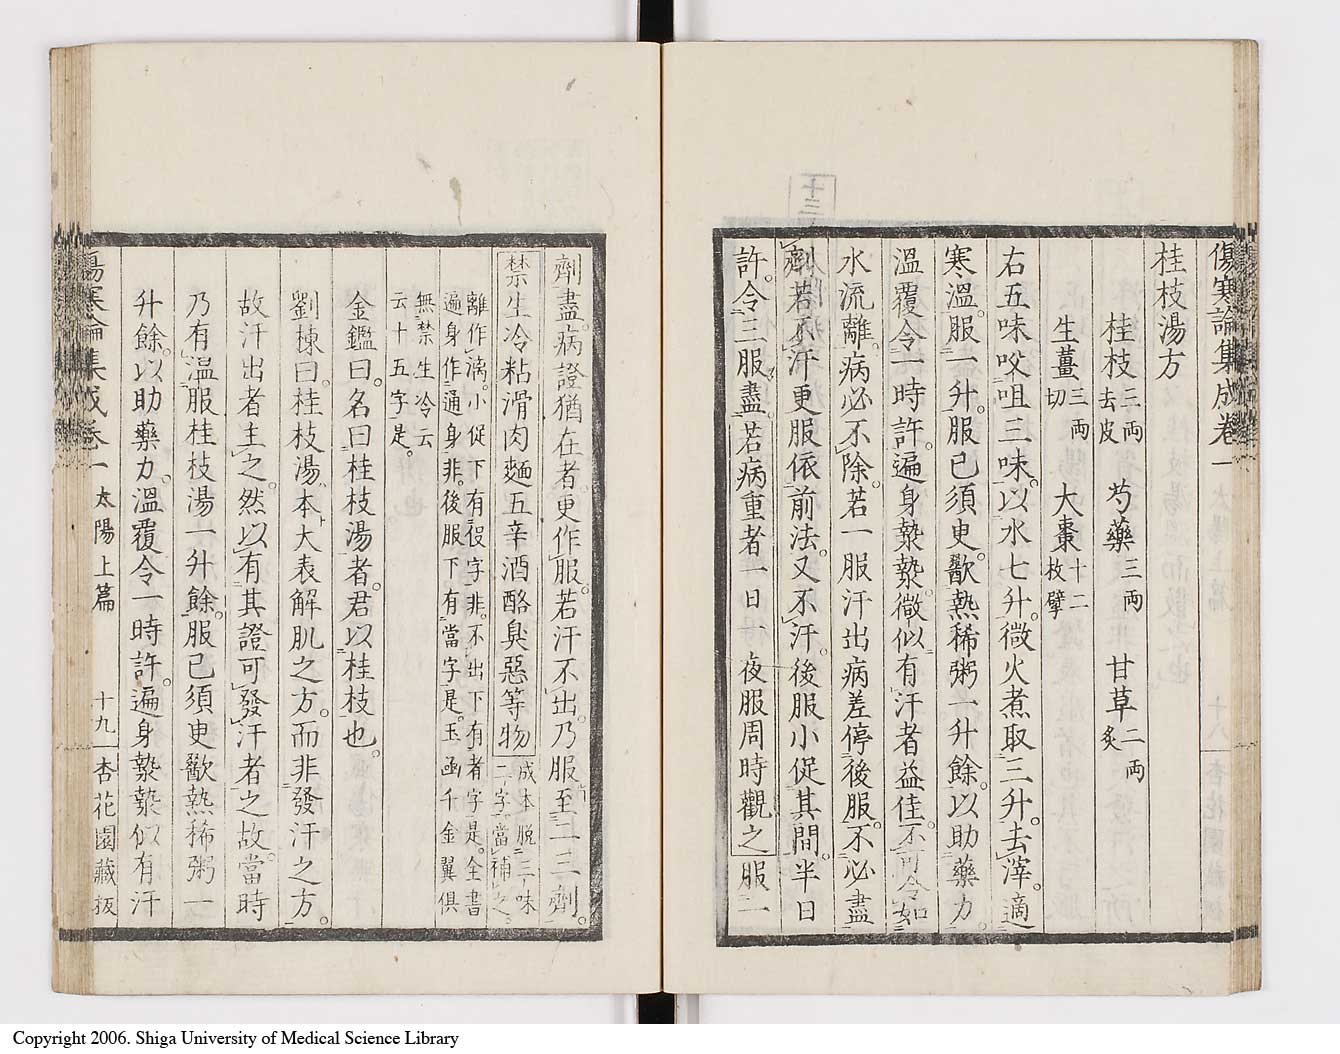 傷寒論集成卷一
桂枝湯方
桂枝三兩去皮 芍藥三兩 甘草二兩炙
生薑三兩切 大棗十二枚擘
右五味㕮咀三味。以水七升。微火煮取三升。去滓。適
寒溫。服一升。服已須臾。歠熱稀粥一升餘。以助藥力。
溫覆令一時許。遍身漐漐。微似有汗者益佳。不可令如
水流離。病必不除。若一服汗出病差。停後服。不必盡
劑。若不汗。更服依前法。又不汗。後服小促其間。半日
許。令三服盡。若病重者。一日一夜服。周時觀之。服一
劑盡。病證猶在者。更作服。若汗不出。乃服至二三劑。
禁生冷粘滑肉麵五辛酒酪臭惡等物成本脫三味二字當補之。
離作漓。小促下有役字非。不出下有者字是。全書
遍身作通身非。後服下有當字是。玉函千金翼俱
無禁生冷云
云十五字是。
金鑑曰。名曰桂枝湯者。君以桂枝也。
劉棟曰。桂枝湯。本大表解肌之方。而非發汗之方。
故汗出者主之。然以有其證可發汗者之故。當時
乃有溫服桂枝湯一升餘。服已須臾歠熱稀粥一
升餘。以助藥力。溫覆令一時許。遍身漐漐似有汗
傷寒論集成卷一 太陽上篇 十九 杏花園藏板
十三
Copyright 2006. Shiga University of Medical Science Library